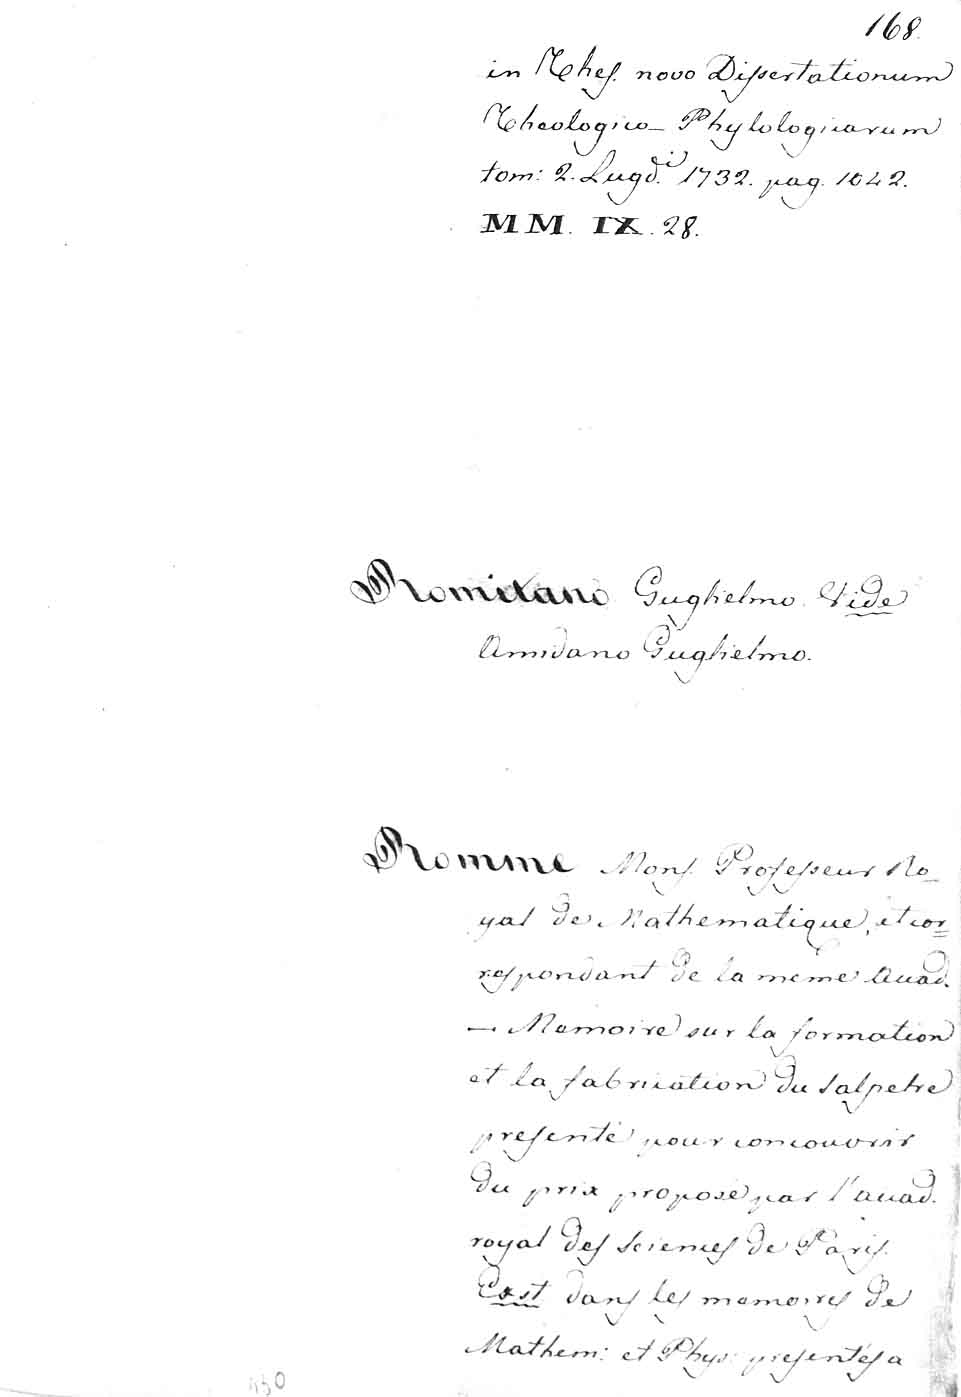 168.
in Thes. novo Dissertationum
Theologico- Phylologicarum
tom: 2. Lugd.i 1732. pag. 1042.
MM. IX. 28.
Romitano Guglielmo. Vide
Amidano Guglielmo.
Romme Mons. Professeur Ro-
yal de Mathematique, et cor=
respondant de la meme Acad.
— Memoire sur la formation
et la fabrication du Salpetre
presenté pour concouvrir
du prix proposé par l'acad.
royal des Sciences de Paris.
Exst dans les memoires de
Mathem: et Phys: presentés a